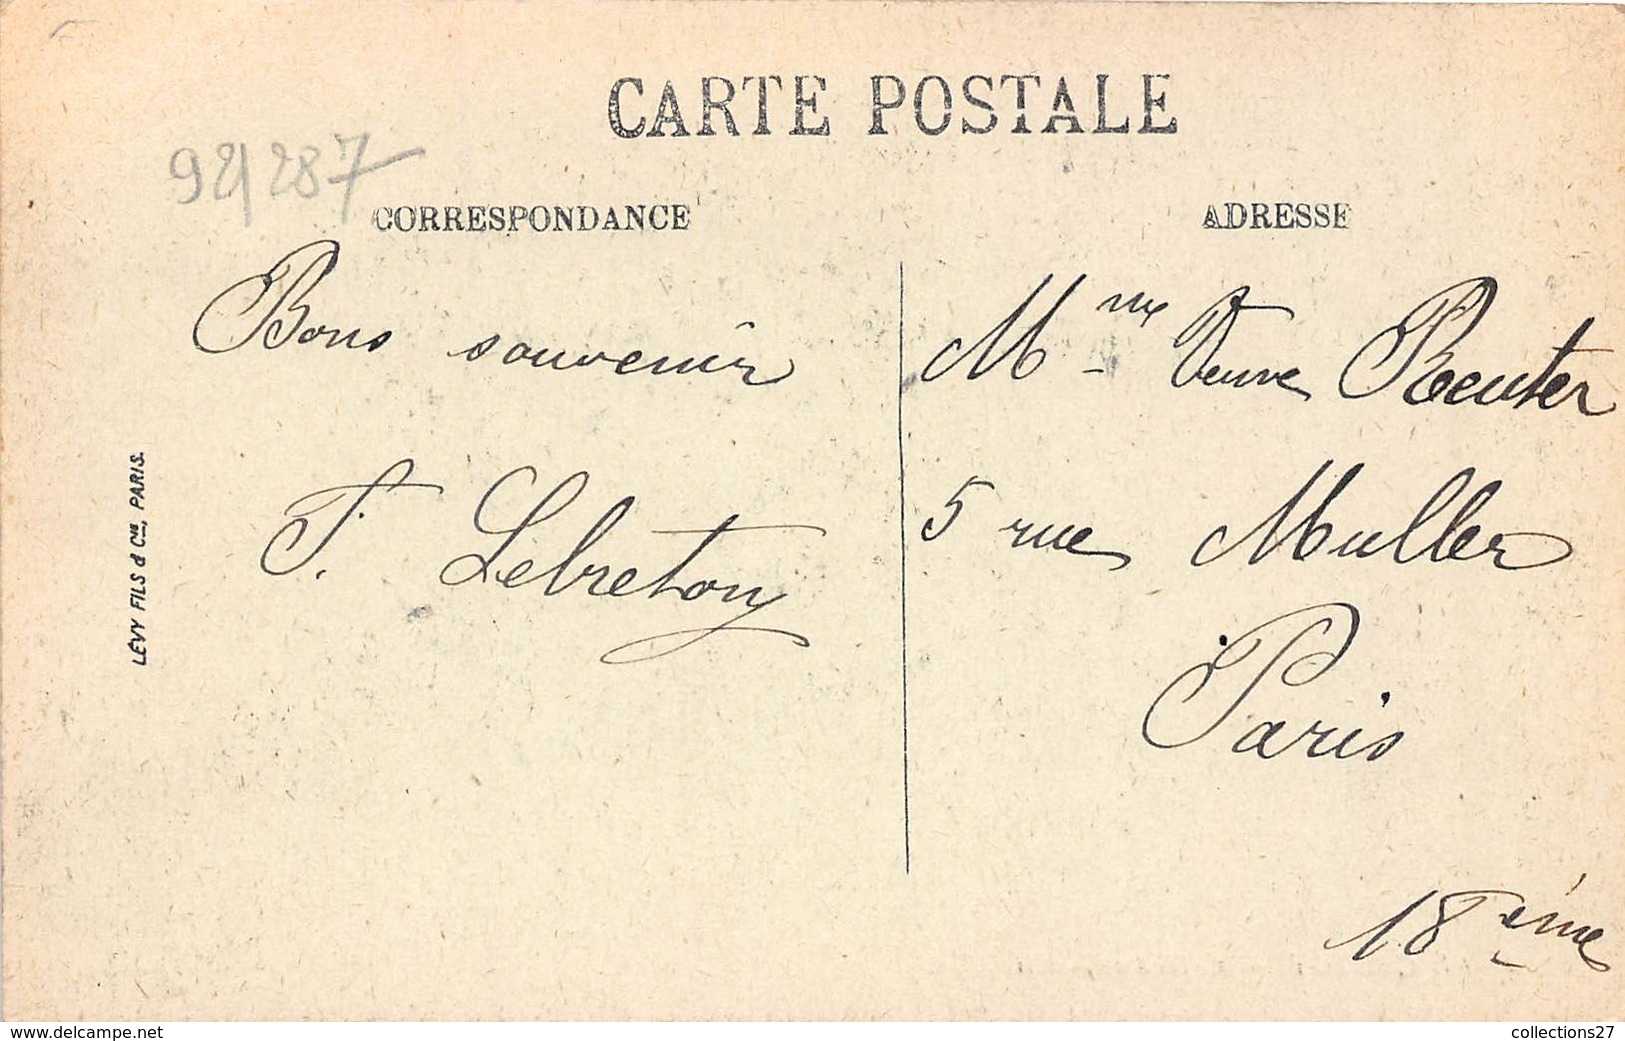 CARTE POSTALE
92/287
CORRESPONDANCE
Bons souvenir
F. Lebreton
LÉVY FILS & Cie, PARIS.
ADRESSE
Mme Veuve Reuter
5 rue Muller
Paris
18ème
www.delcampe.net
collections27